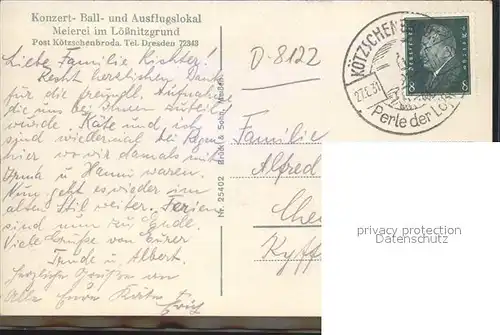 Konzert- Ball- und Ausflugslokal
Meierei im Lößnitzgrund
Post Kötzschenbroda. Tel. Dresden 72343
Liebe Familie Richter!
Recht herzlichen Dank
für die freundl. Aufnahme
die uns bei Ihnen zuteil
wurde. Käte und ich
sind wiedermal bei Regen
hier wo wir damals mit
Irma u Henni waren.
Nun geht es wieder im
alten Stil weiter. Ferien
sind nun zu Ende.
Viele Grüße von Eurer
Trude u. Albert.
Herzliche Grüßen an
Alle Eure Käte +
Erich
Nr. 25402 Brück & Sohn, Meißen.
D-8122
KÖTZSCHENB
27.8.31
Perle der Löß
DEUTSCHES REICH
8 8
Familie
Alfred
Che
Kyff
privacy protection
Datenschutz